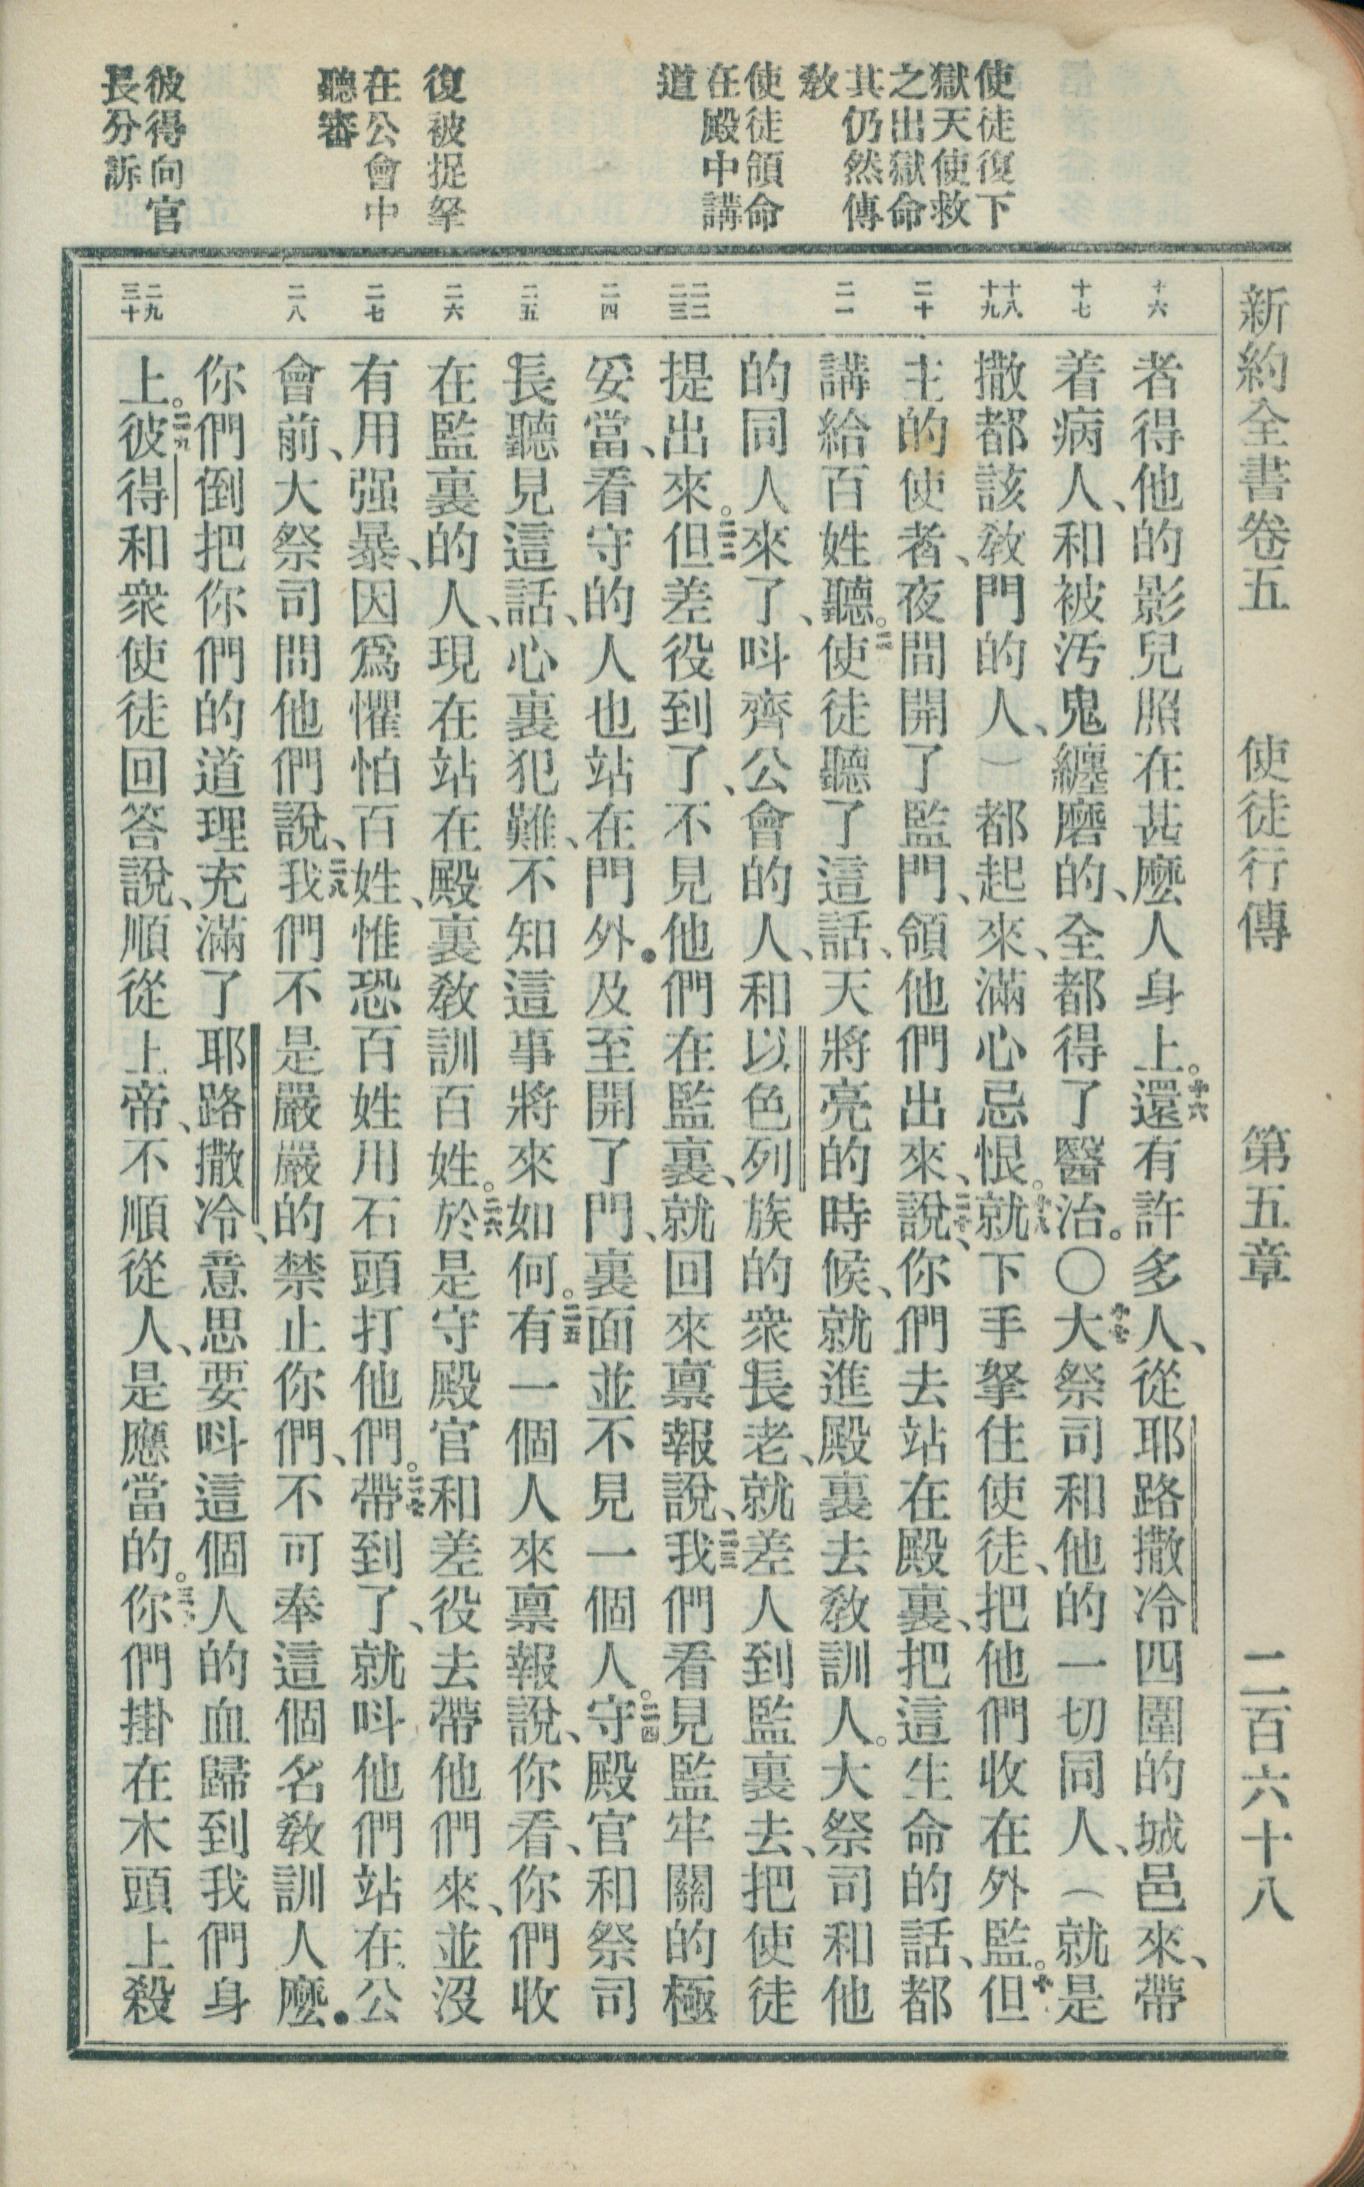 新約全書卷五　使徒行傳　第五章　二百六十八
使徒復下
獄天使救
之出獄命
其仍然傳
教
使徒領命
在殿中講
道
復被捉拏
在公會中
聽審
彼得向官
長分訴
十六
十七
十八
十九
二十
二一
二二
二三
二四
二五
二六
二七
二八
二九
三十
者得他的影兒照在甚麽人身上。十六還有許多人、從耶路撒冷四圍的城邑來、帶
着病人、和被汚鬼纏磨的、全都得了醫治。〇十七大祭司和他的一切同人、（就是
撒都該敎門的人、）都起來、滿心忌恨。十八就下手拏住使徒、把他們收在外監。十九但
主的使者、夜間開了監門、領他們出來、說、二十你們去站在殿裏、把這生命的話、都
講給百姓聽。二一使徒聽了這話、天將亮的時候、就進殿裏去敎訓人。大祭司和他
的同人來了、呌齊公會的人、和以色列族的衆長老、就差人到監裏去、把使徒
提出來。二二但差役到了、不見他們在監裏、就回來禀報說、二三我們看見監牢關的極
妥當、看守的人也站在門外．及至開了門、裏面並不見一個人。二四守殿官和祭司
長聽見這話、心裏犯難、不知這事將來如何。二五有一個人來禀報說、你看、你們收
在監裏的人、現在站在殿裏敎訓百姓。二六於是守殿官和差役去帶他們來、並沒
有用强暴、因爲懼怕百姓、惟恐百姓用石頭打他們。二七帶到了、就呌他們站在公
會前、大祭司問他們說、二八我們不是嚴嚴的禁止你們、不可奉這個名敎訓人麽．
你們倒把你們的道理充滿了耶路撒冷、意思要呌這個人的血歸到我們身
上。二九彼得和衆使徒回答說、順從上帝、不順從人、是應當的。三十你們掛在木頭上殺